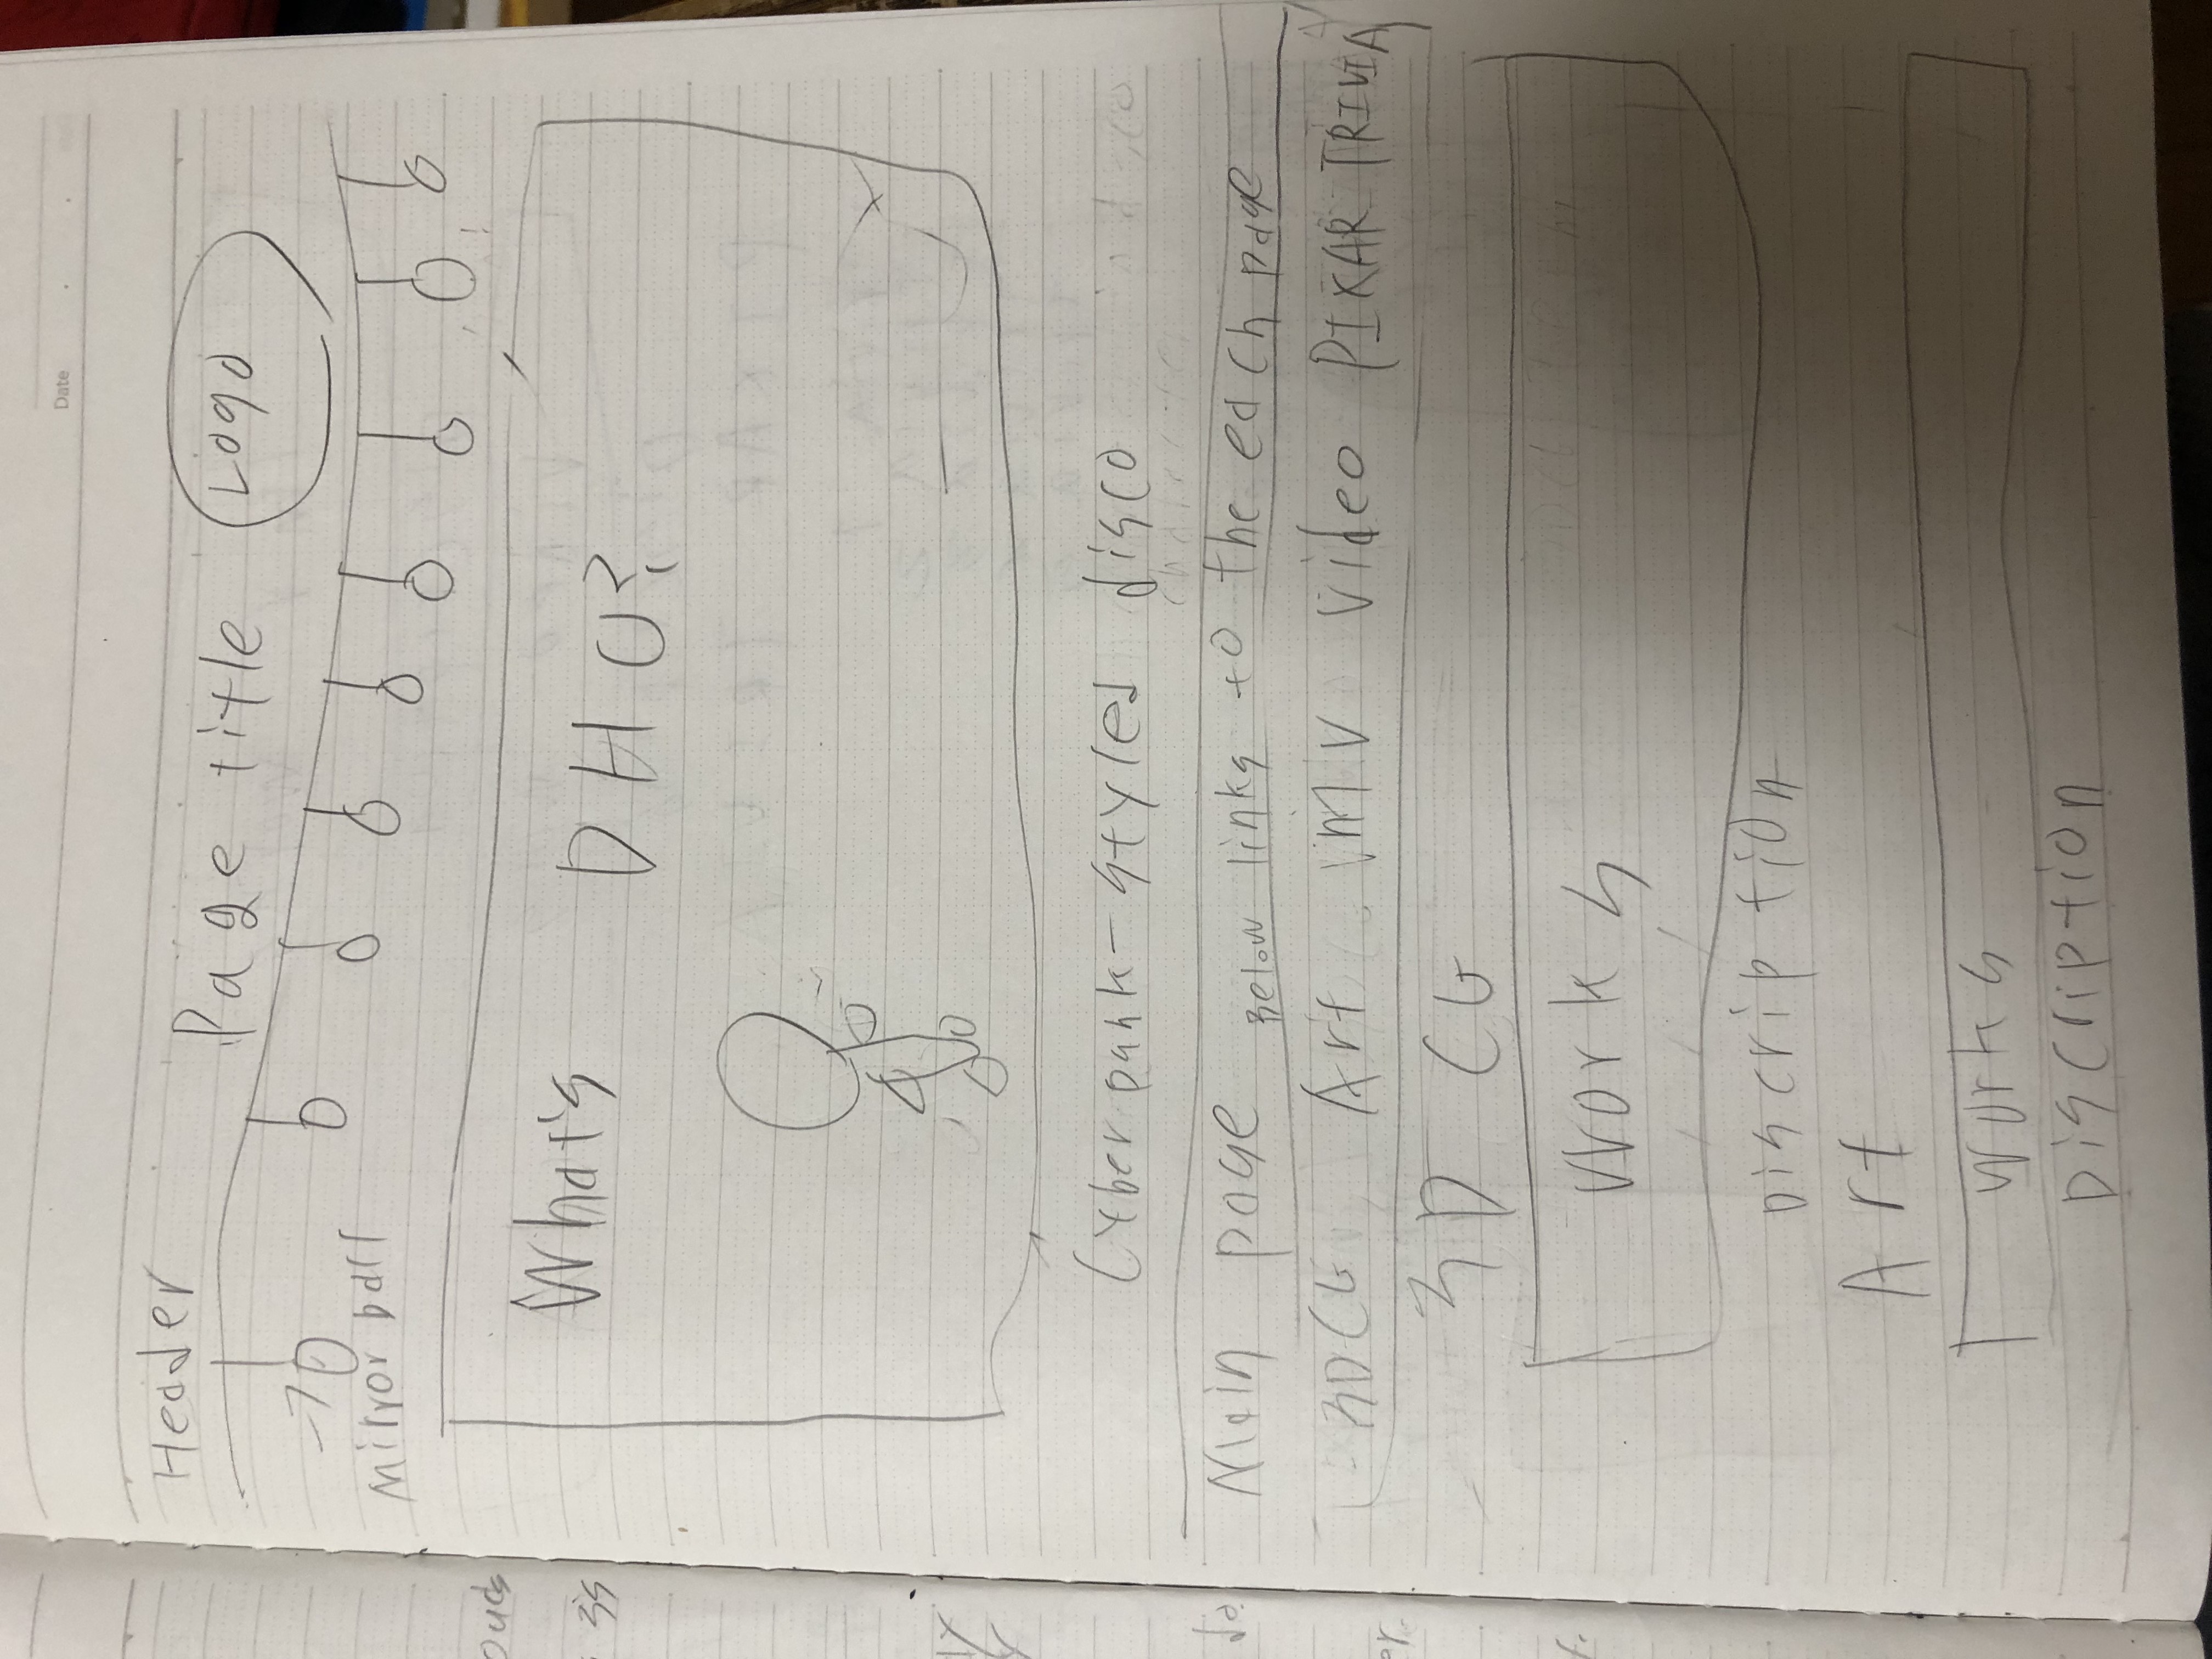 Date
Header
Page title
Logo
Mirror ball
What's DHU?
Cyber pank-styled disco
Main page Below links to the each page
3DCG Art MV Video PIXAR TRIVIA
3D CG
Works
Discription
Art
Works
Discription
ouds